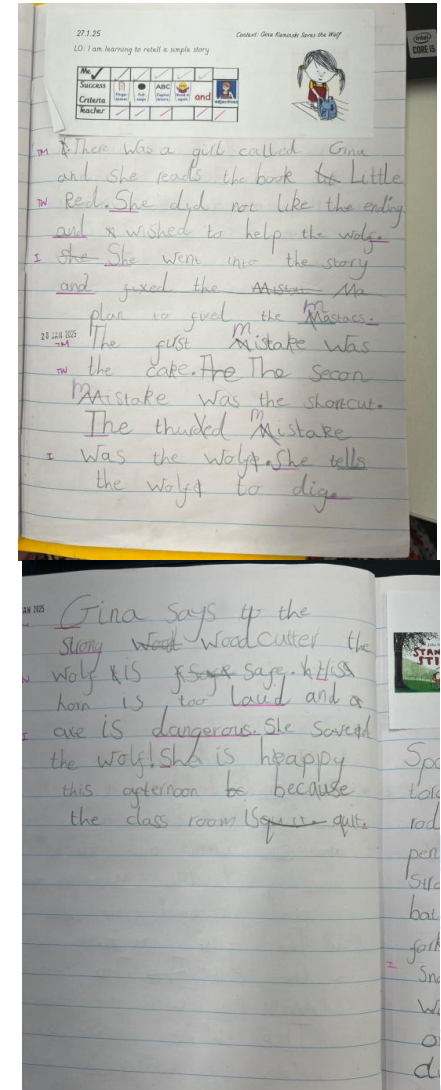 27.1.25 Context: Gina Kaminski Saves the Wolf
LO: I am learning to retell a simple story
Me
Success Criteria Finger spaces Full stops ABC Capital letters Read it again and adjectives
Teacher
There was a girl called Gina
and she reads the book Little
Red. She dyd not like the ending
and wished to help the wolf.
She She went into the story
and fixed the Ma
plan to fixed the mastacs.
20 JAN 2025
The fust mistake was
the cake. The The secon
mistake was the shortcut.
The thurded mistake
was the wolf. She tells
the wolf to dig.
intel
CORE i5
AN 2025
Gina says to the
strong Wood woodcutter the
wolf is safe. Hiss
horn is too laud and a
axe is dangerous. She saved
the wolf! She is heappy
this afternoon because
the class room is quit.
STAN
STI
Spo
rod
pen
bat
Sna